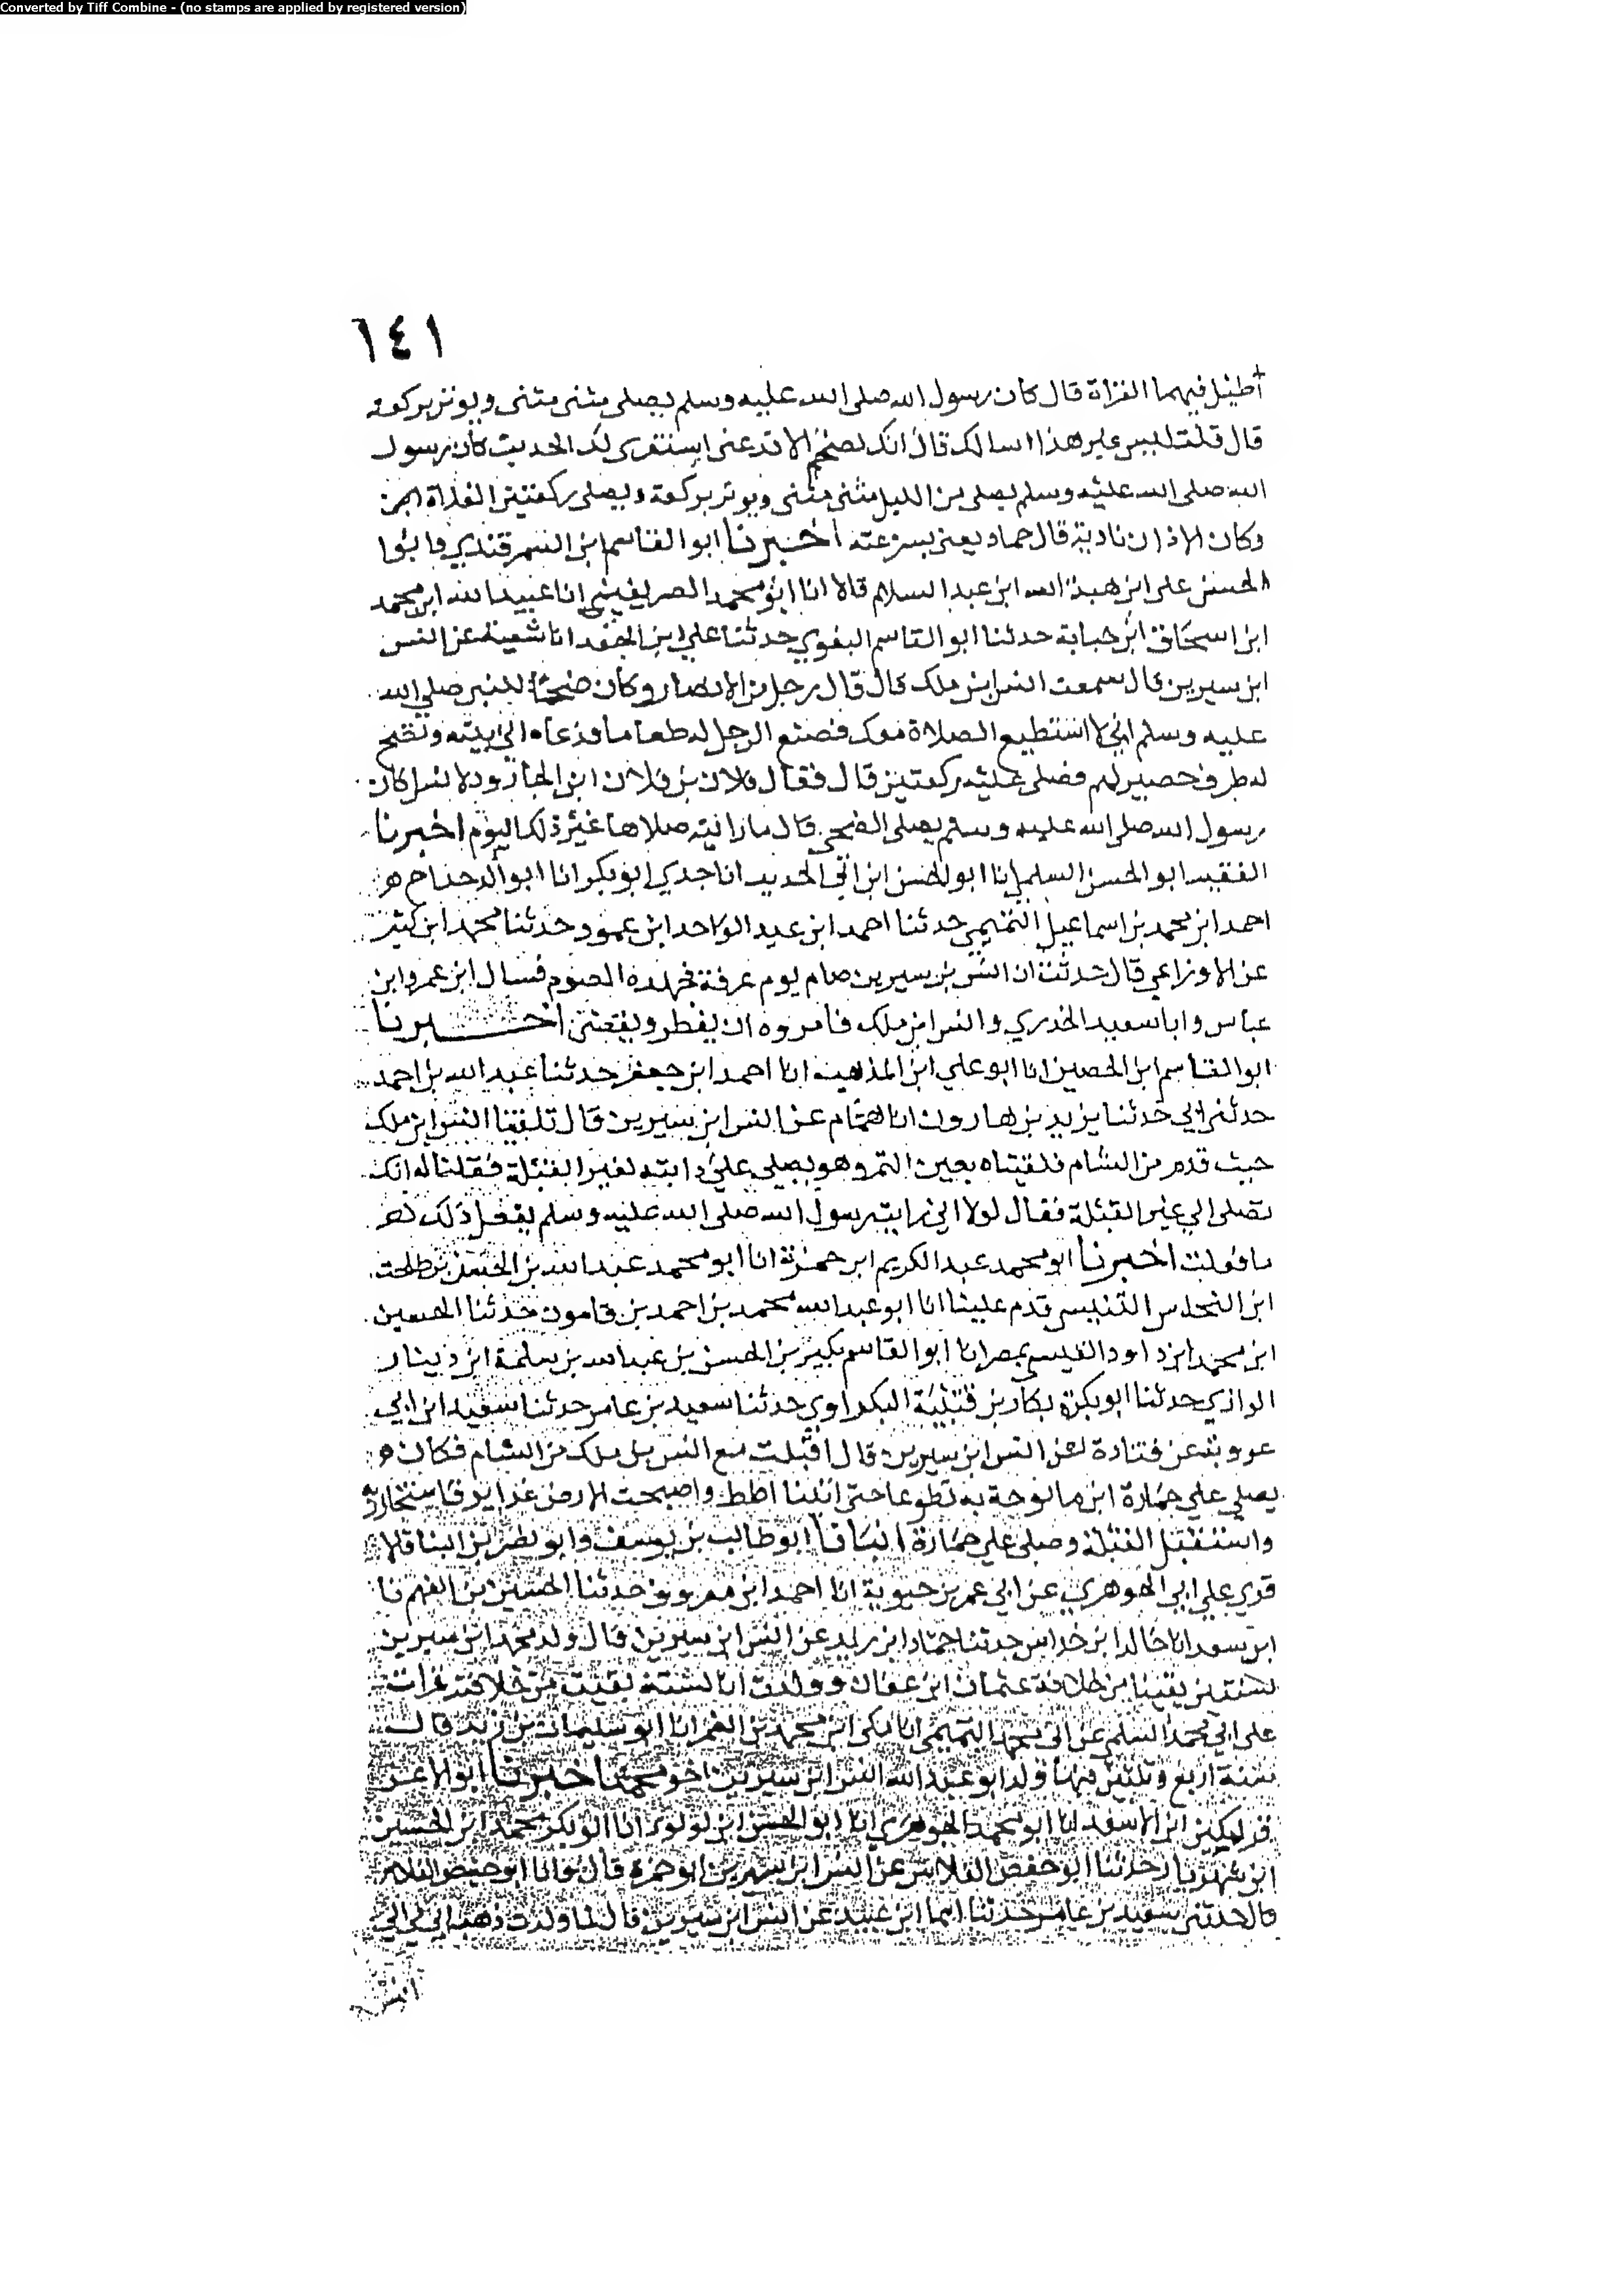 Converted by Tiff Combine - (no stamps are applied by registered version)
١٤١
أطيل فيهما القراة قال كان رسول الله صلى الله عليه وسلم يصلى مثنى مثنى ويوتر بركعة
قال قلت ليس عن هذا اسالك قال انك لضخم الا تدعنى استقرى لك الحديث كان رسول
الله صلى الله عليه وسلم يصلى من الليل مثنى مثنى ويوتر بركعة ويصلى ركعتين الغداة
وكان الاذان قال حماد يعنى بسرعته اخبرنا ابو القاسم ابن السمرقندي وابو
الحسن على ابن هبة الله ابن عبد السلام قالا انا ابو محمد الصريفيني انا عبيد الله ابن محمد
ابن اسحاق ابن حبابة حدثنا ابو القاسم البغوي حدثنا علي ابن الجعد انا شعبة عن انس
ابن سيرين قال سمعت انس ابن ملك قال قال رجل من الانصار وكان ضخما للنبي صلي الله
عليه وسلم اني لا استطيع الصلاة معك فصنع الرجل له طعاما ودعاه الى بيته ونضح
له طرف حصير لهم فصلى عليه ركعتين قال فقال فلان بن فلان ابن الجارود لانس اكان
رسول الله صلى الله عليه وسلم يصلى الضحى قال ما رايته صلاها غير ذلك اليوم اخبرنا
الفقيه ابو الحسن السلمي انا ابو الحسن ابن ابي الحديد انا جدي ابو بكر انا ابو الدحداح
احمد ابن محمد بن اسماعيل التميمي حدثنا احمد ابن عبد الواحد ابن عبود حدثنا محمد ابن كثير
عن الاوزاعي قال حدثت ان انس بن سيرين صام يوم عرفة فجهده الصوم فسال ابن عمر وابن
عباس وابا سعيد الخدري وانس ابن ملك فامروه ان يفطر ويقضى اخبرنا
ابو القاسم ابن الحصين انا ابو علي ابن المذهب انا احمد ابن جعفر حدثنا عبد الله بن احمد
حدثنى ابي حدثنا يزيد بن هارون انا همام عن انس ابن سيرين قال تلقينا انس ابن ملك
حيث قدم من الشام فلقيناه بعين التمر وهو يصلي علي دابته لغير القبلة فقلنا له انك
تصلى الي غير القبلة فقال لولا اني رايت رسول الله صلى الله عليه وسلم يفعل ذلك
ما فعلت اخبرنا ابو محمد عبد الكريم ابن حمزة انا ابو محمد عبد الله بن الحسن بن طلحة
ابن النحاس التنيسى قدم علينا انا ابو عبد الله محمد بن احمد بن حدثنا الحسين
ابن محمد ابن داود القيسى بمصر انا ابو القاسم بكير بن الحسن بن عبد الله بن سلمة ابن دينار
الرازي حدثنا ابو بكرة بكار بن قتيبة البكراوي حدثنا سعيد بن عامر حدثنا سعيد ابن ابي
عروبة عن قتادة عن انس ابن سيرين قال اقبلت مع انس بن ملك من الشام فكان
يصلي علي حمارة اين ما توجه به تطوعا حتى اتينا اطط واصبحت الارض
واستقبل القبلة وصلى علي حمارة انبانا ابو طالب بن يوسف وابو نصر بن البنا قالا
قري علي ابي الجوهري عن ابي عمر بن حيوية انا احمد ابن معروف حدثنا الحسين بن الفهم نا
ابن سعد انا خالد ابن خداش حدثنا حماد ابن زيد عن انس ابن سيرين قال ولد محمد ابن سيرين
لسنتين بقيتا من خلافة عثمان ابن عفان وولدت انا لسنة بقيت من خلافته قرات
على ابي محمد السلمي عن ابي محمد التميمي انا مكي ابن محمد بن الغمر انا ابو سليمان بن زبر قال
سنة اربع وثلثين فيها ولد ابو عبد الله انس ابن سيرين اخو محمد اخبرنا ابو الاعز
قراتكين ابن الاسعد انا ابو محمد الجوهري انا ابو الحسن ابن لولو انا ابو بكر محمد ابن الحسين
ابن شهريار حدثنا ابو حفص الفلاس عن انس ابن سيرين ابو حمزة قال وانا ابو حفص الفلاس
قال حدثنى سعيد بن عامر حدثنا اسما ابن عبيد عن انس ابن سيرين قال لما ولدت ذهب ابي بي الي
انس